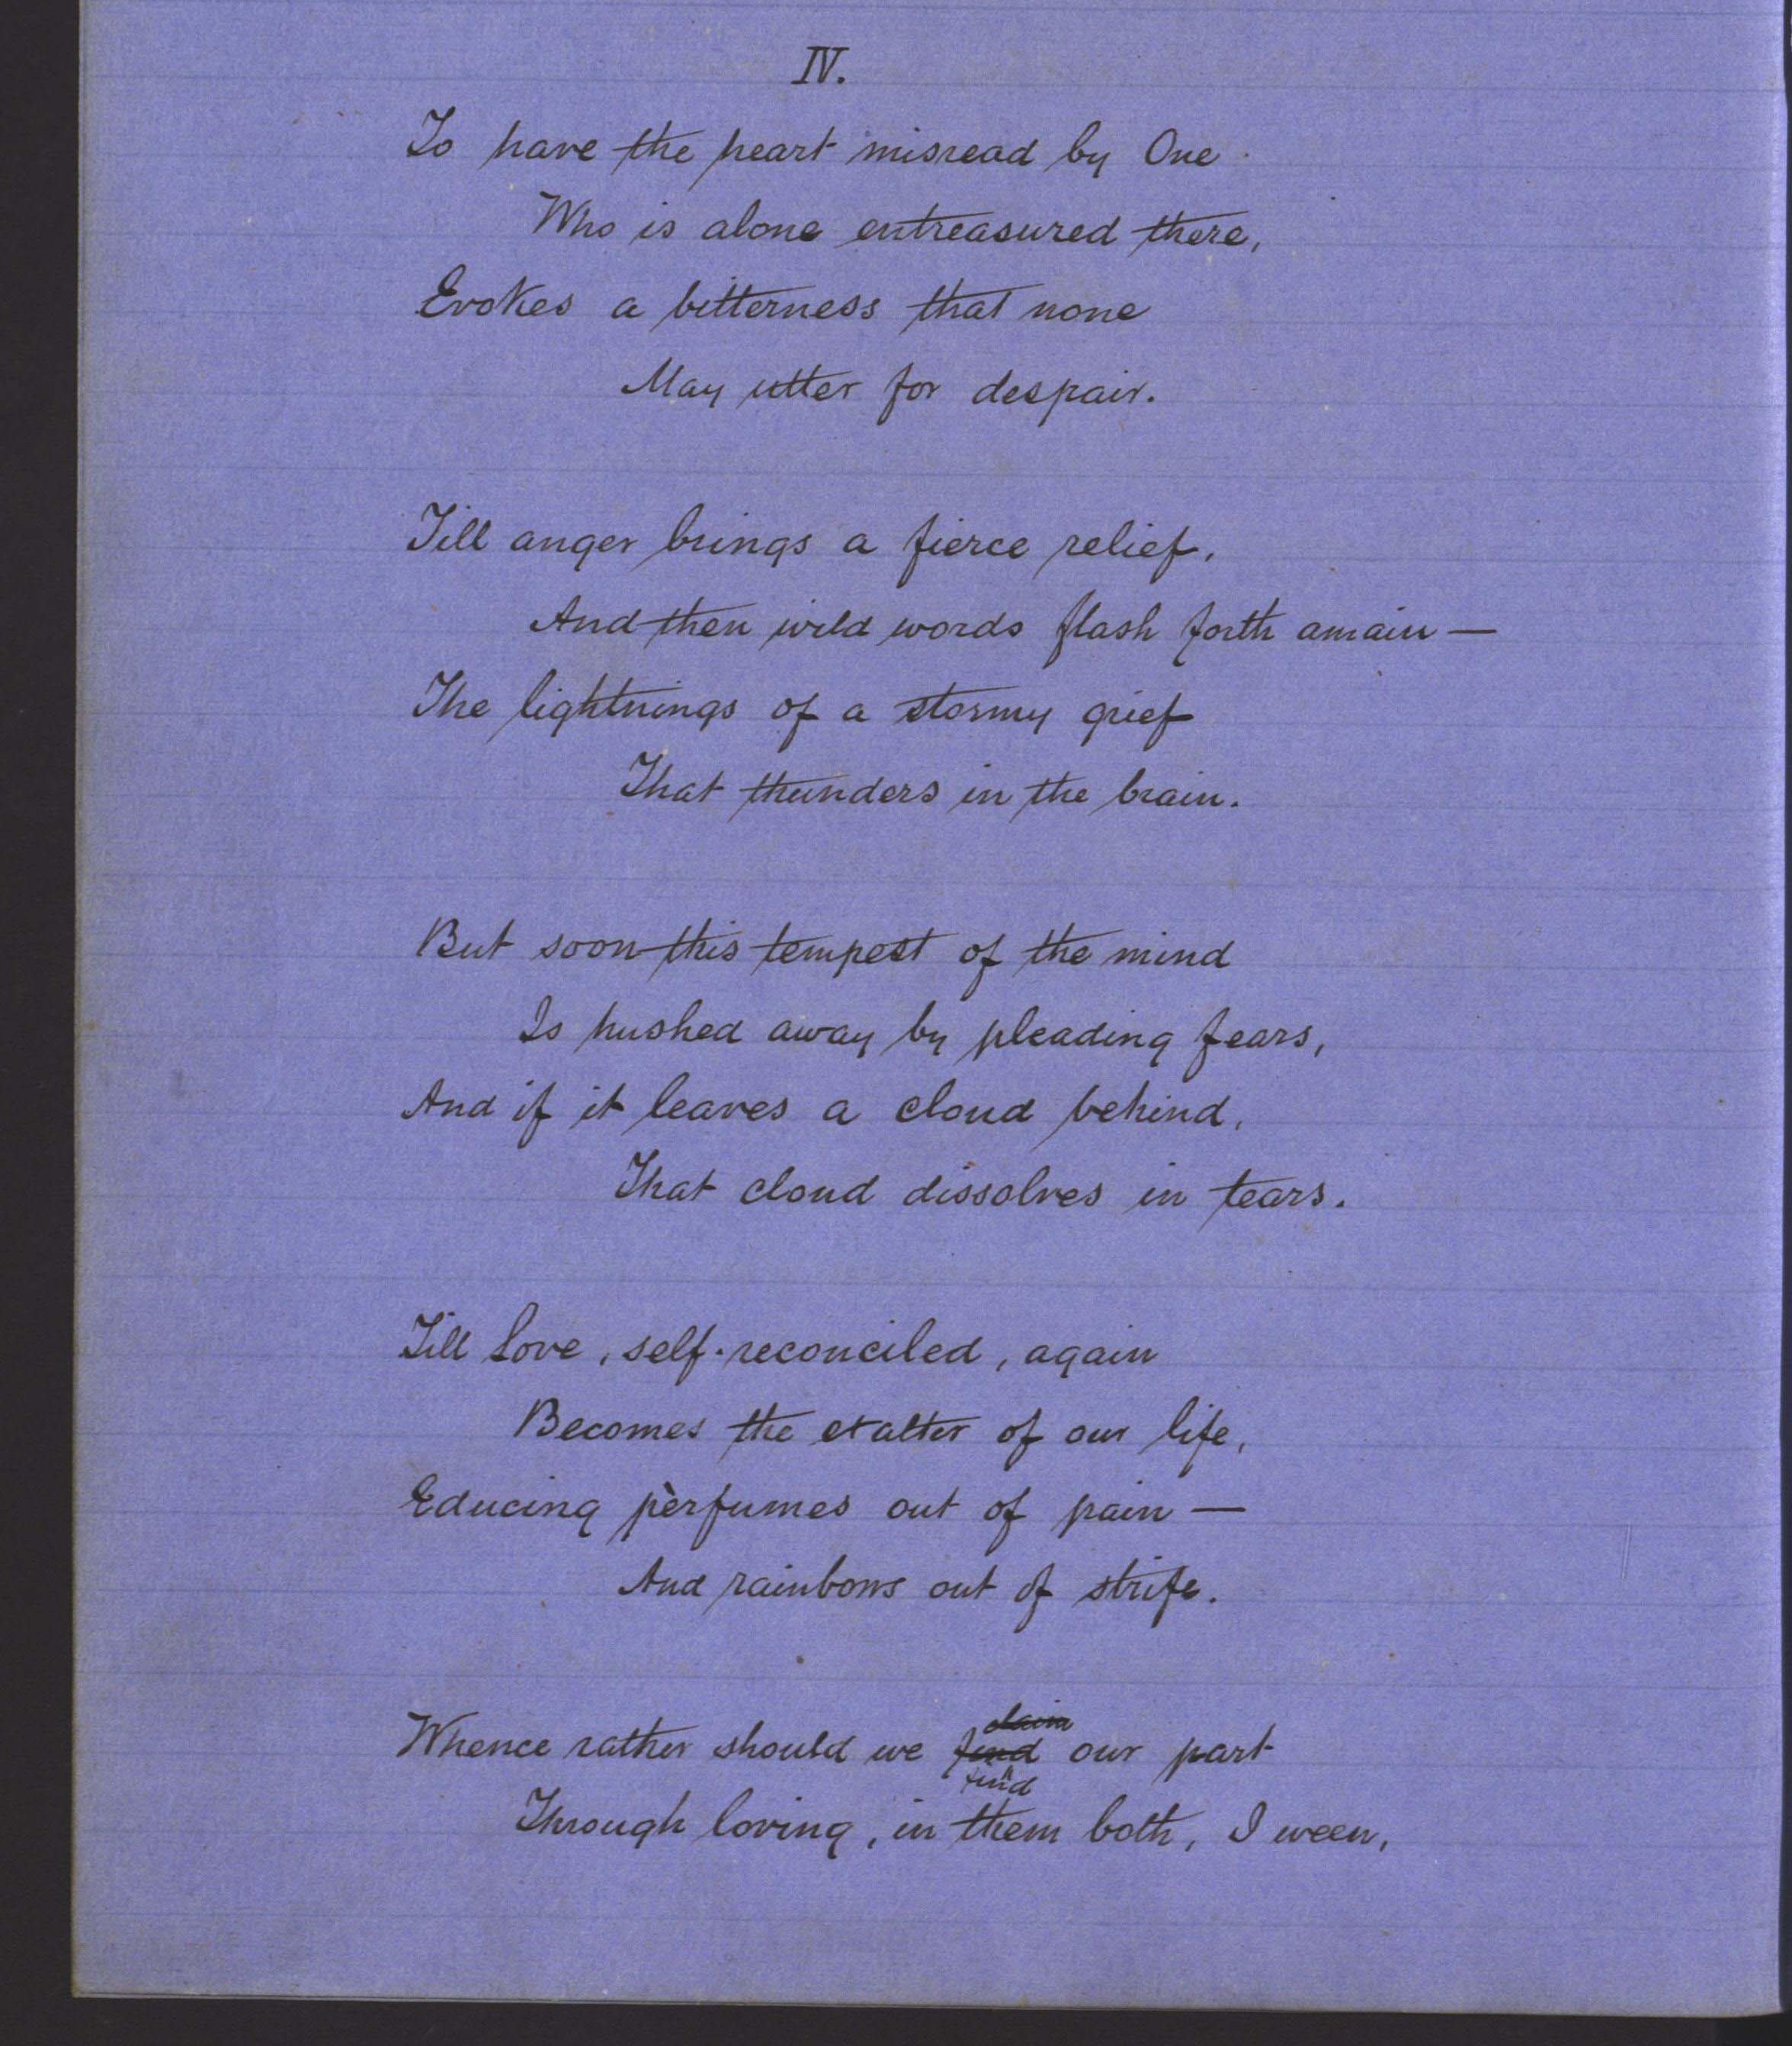 IV.
To have the heart misread by One
Who is alone entreasured there,
Evokes a bitterness that none
May utter for despair.
Till anger brings a fierce relief,
And then wild words flash forth amain —
The lightnings of a stormy grief
That thunders in the brain.
But soon this tempest of the mind
Is hushed away by pleading fears,
And if it leaves a cloud behind,
That cloud dissolves in tears.
Till Love, self-reconciled, again
Becomes the exalter of our life,
Educing pèrfumes out of pain —
And rainbows out of strife.
claim
Whence rather should we find our part
find
Through loving, in them both, I ween,